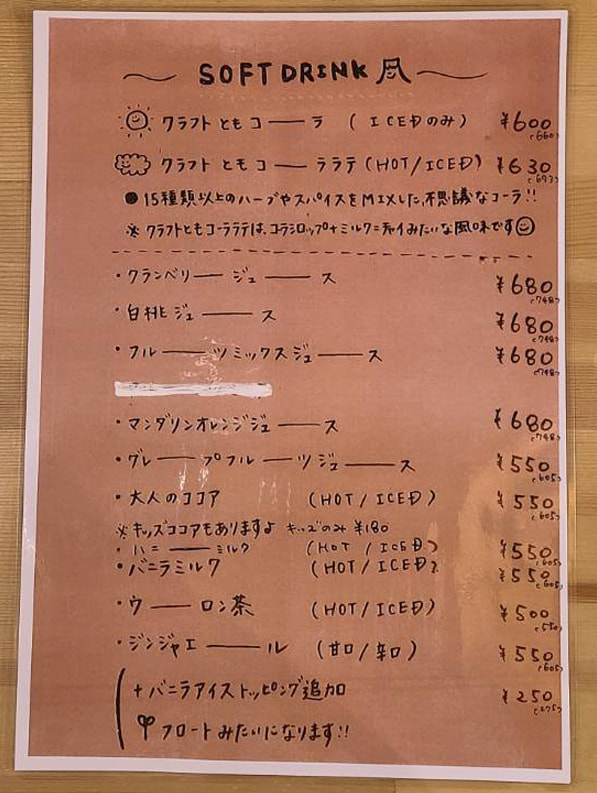 SOFT DRINK
クラフトともコーラ (ICEDのみ) ¥600 (660)
クラフトともコーララテ (HOT/ICED) ¥630 (693)
●15種類以上のハーブやスパイスをMIXした、不思議なコーラ!!
※クラフトともコーララテは、コーラシロップ+ミルク=チャイみたいな風味です
・クランベリージュース ¥680 (748)
・白桃ジュース ¥680 (748)
・フルーツミックスジュース ¥680 (748)
・マンダリンオレンジジュース ¥680 (748)
・グレープフルーツジュース ¥550 (605)
・大人のココア (HOT/ICED) ¥550 (605)
※キッズココアもありますよ キッズのみ ¥180
・ハニーミルク (HOT/ICED) ¥550 (605)
・バニラミルク (HOT/ICED) ¥550 (605)
・ウーロン茶 (HOT/ICED) ¥500 (550)
・ジンジャエール (甘口/辛口) ¥550 (605)
+バニラアイストッピング追加 ¥250 (275)
フロートみたいになります!!